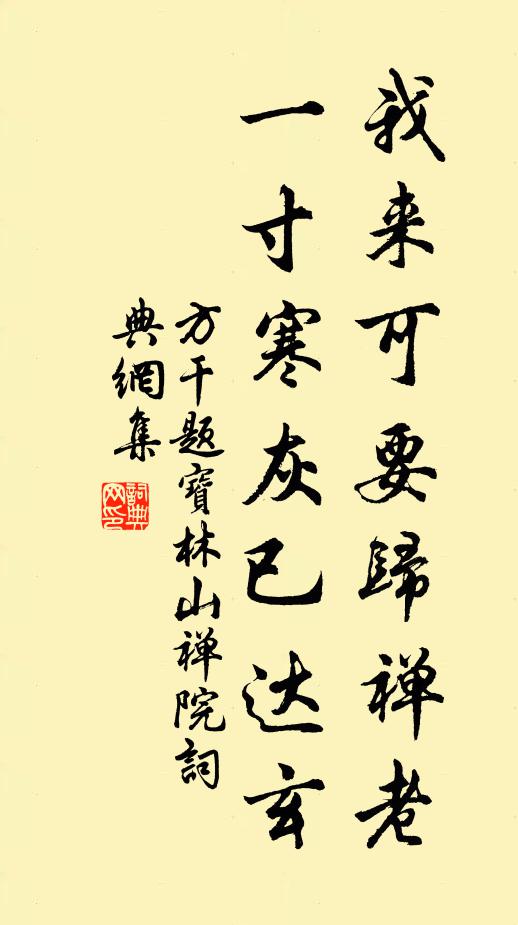 我来可要歸禅老
一寸寒灰已达玄
方干题寶林山禅院詞
典網集
詞典网印